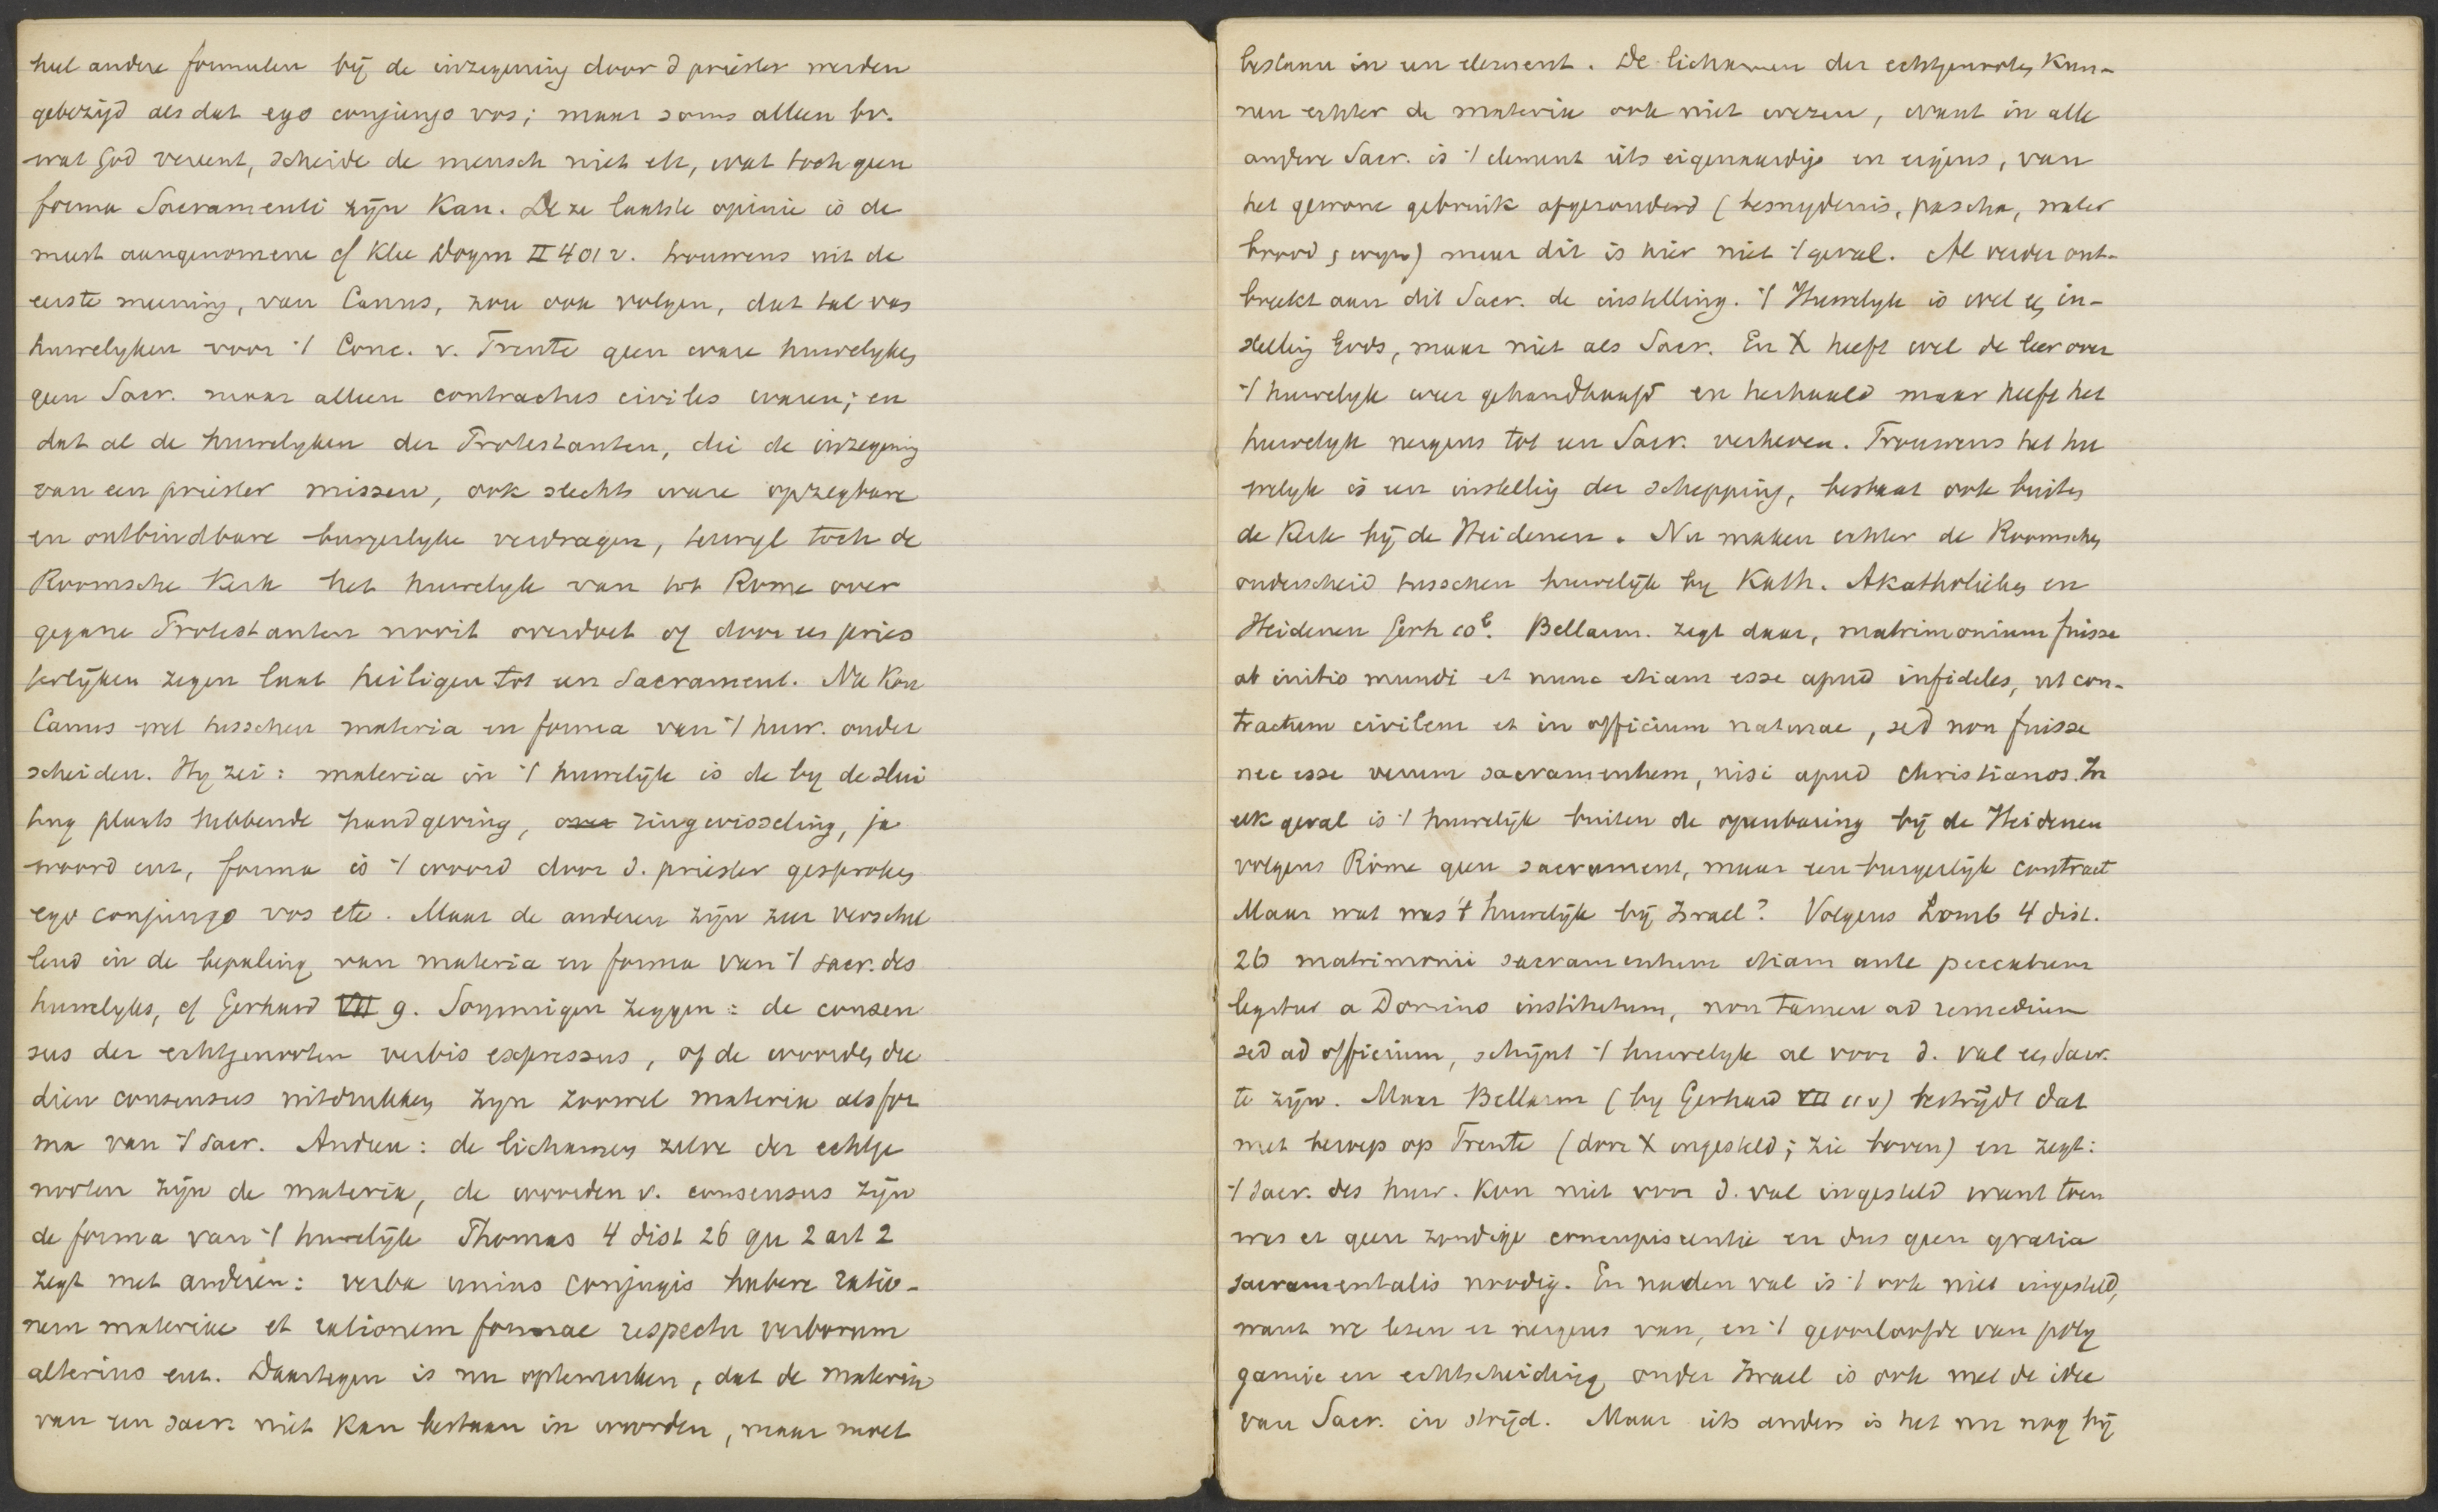 heel andere formulen bij de inzegening door d priester werden
gebezigd als dat ego conjungo vos; maar soms alleen bv.
wat God vereent, scheide de mensch niet etc, wat toch geen
forma Sacramenti zijn kan. Deze laatste opinie is de
meest aangenomene cf Klee Dogm II 401 v. trouwens uit de
eerste meening, van Canus, zou ook volgen, dat tal van
huwelyken voor 't Conc. v. Trente geen ware huwelykes
geen Sacr. maar alleen contractus civiles waren; en
dat al de huwelyken der Protestanten, die de inzegening
van een priester missen, ook slechts ware opzegbare
en ontbindbare burgerlyke verdragen, terwyl toch de
Roomsche Kerk het huwelyk van tot Rome over
gegane Protestanten nooit overdoet of door een pries
terlijken zegen laat heiligen tot een Sacrament. Nu kon
Canus wel tusschen materia en forma van 't huw. onder
scheiden. Hy zei: materia in 't huwelijk is de by de slui
ting plaats hebbende handgeving, over ringwisseling, ja
woord enz, forma is 't woord door d. priester gesproken
ego conjungo vos etc. Maar de anderen zijn zeer verschil
lend in de bepaling van materia en forma van 't sacr. des
huwelyks, cf Gerhard VII 9. Sommigen zeggen: de consen
sus der echtgenooten verbis expressus, of de woorden die
dien consensus uitdrukken zyn zoowel materia als for
ma van 't sacr. Andren: de lichamen zelve der echtge
nooten zijn de materia, de woorden v. consensus zijn
de forma van 't huwelijk Thomas 4 dist 26 qu 2 art 2
zegt met anderen: verba unius conjugis habere ratio-
nem materiae et rationem formae respectu verborum
alterius enz. Daartegen is nu optemerken, dat de materia
van een sacr. niet kan bestaan in woorden, maar moet
bestaan in een element. De lichamen der echtgenooten kun-
nen echter de materia ook niet wezen, want in alle
andere Sacr. is 't element iets eigenaardigs en ergens, van
het gewone gebruik afgezonderd (besnydenis, pascha, water
brood, wyn) maar dit is hier niet 't geval. Al verder ont-
breekt aan dit Sacr. de instelling. 't Huwelyk is wel een in-
stelling Gods, maar niet als Sacr. En X heeft wel de leer over
't huwelyk weer gehandhaafd en herhaald maar heeft het
huwelyk nergens tot een Sacr. verheven. Trouwens het hu
welyk is een instelling der schepping, bestaat ook buiten
de Kerk bij de Heidenen. Nu maken echter de Roomschen
onderscheid tusschen huwelijk by Kath. Akatholieken en
Heidenen Gerh Bellarm. zegt daar, matrimonium fuisse
ab initio mundi et nunc etiam esse apud infideles, ut con-
tractum civilem et in officium naturae, sed non fuisse
nec esse verum sacramentum, nisi apud Christianos. In
elk geval is 't huwelijk buiten de openbaring bij de Heidenen
volgens Rome geen sacrament, maar een burgerlijk contract
Maar wat was 't huwelijk bij Israel? Volgens Lomb 4 dist.
26 matrimonii sacramentum etiam ante peccatum
legitur a Domino institutum, non tamen ad remedium
sed ad officium, schijnt 't huwelyk al voor d. val een Sacr.
te zijn. Maar Bellarm (by Gerhard VII 11 v) bestrijdt dat
met beroep op Trente (door X ingesteld; zie boven) en zegt:
't Sacr. des huw. kon niet voor d. val ingesteld want toen
was er geen zondige concupiscentie en dus geen gratia
sacramentalis noodig. En na den val is 't ook niet ingesteld,
want we lezen er nergens van, en 't geoorloofde van poly
gamie en echtscheiding onder Israel is ook met de idee
van Sacr. in strijd. Maar iets anders is het nu nog bij